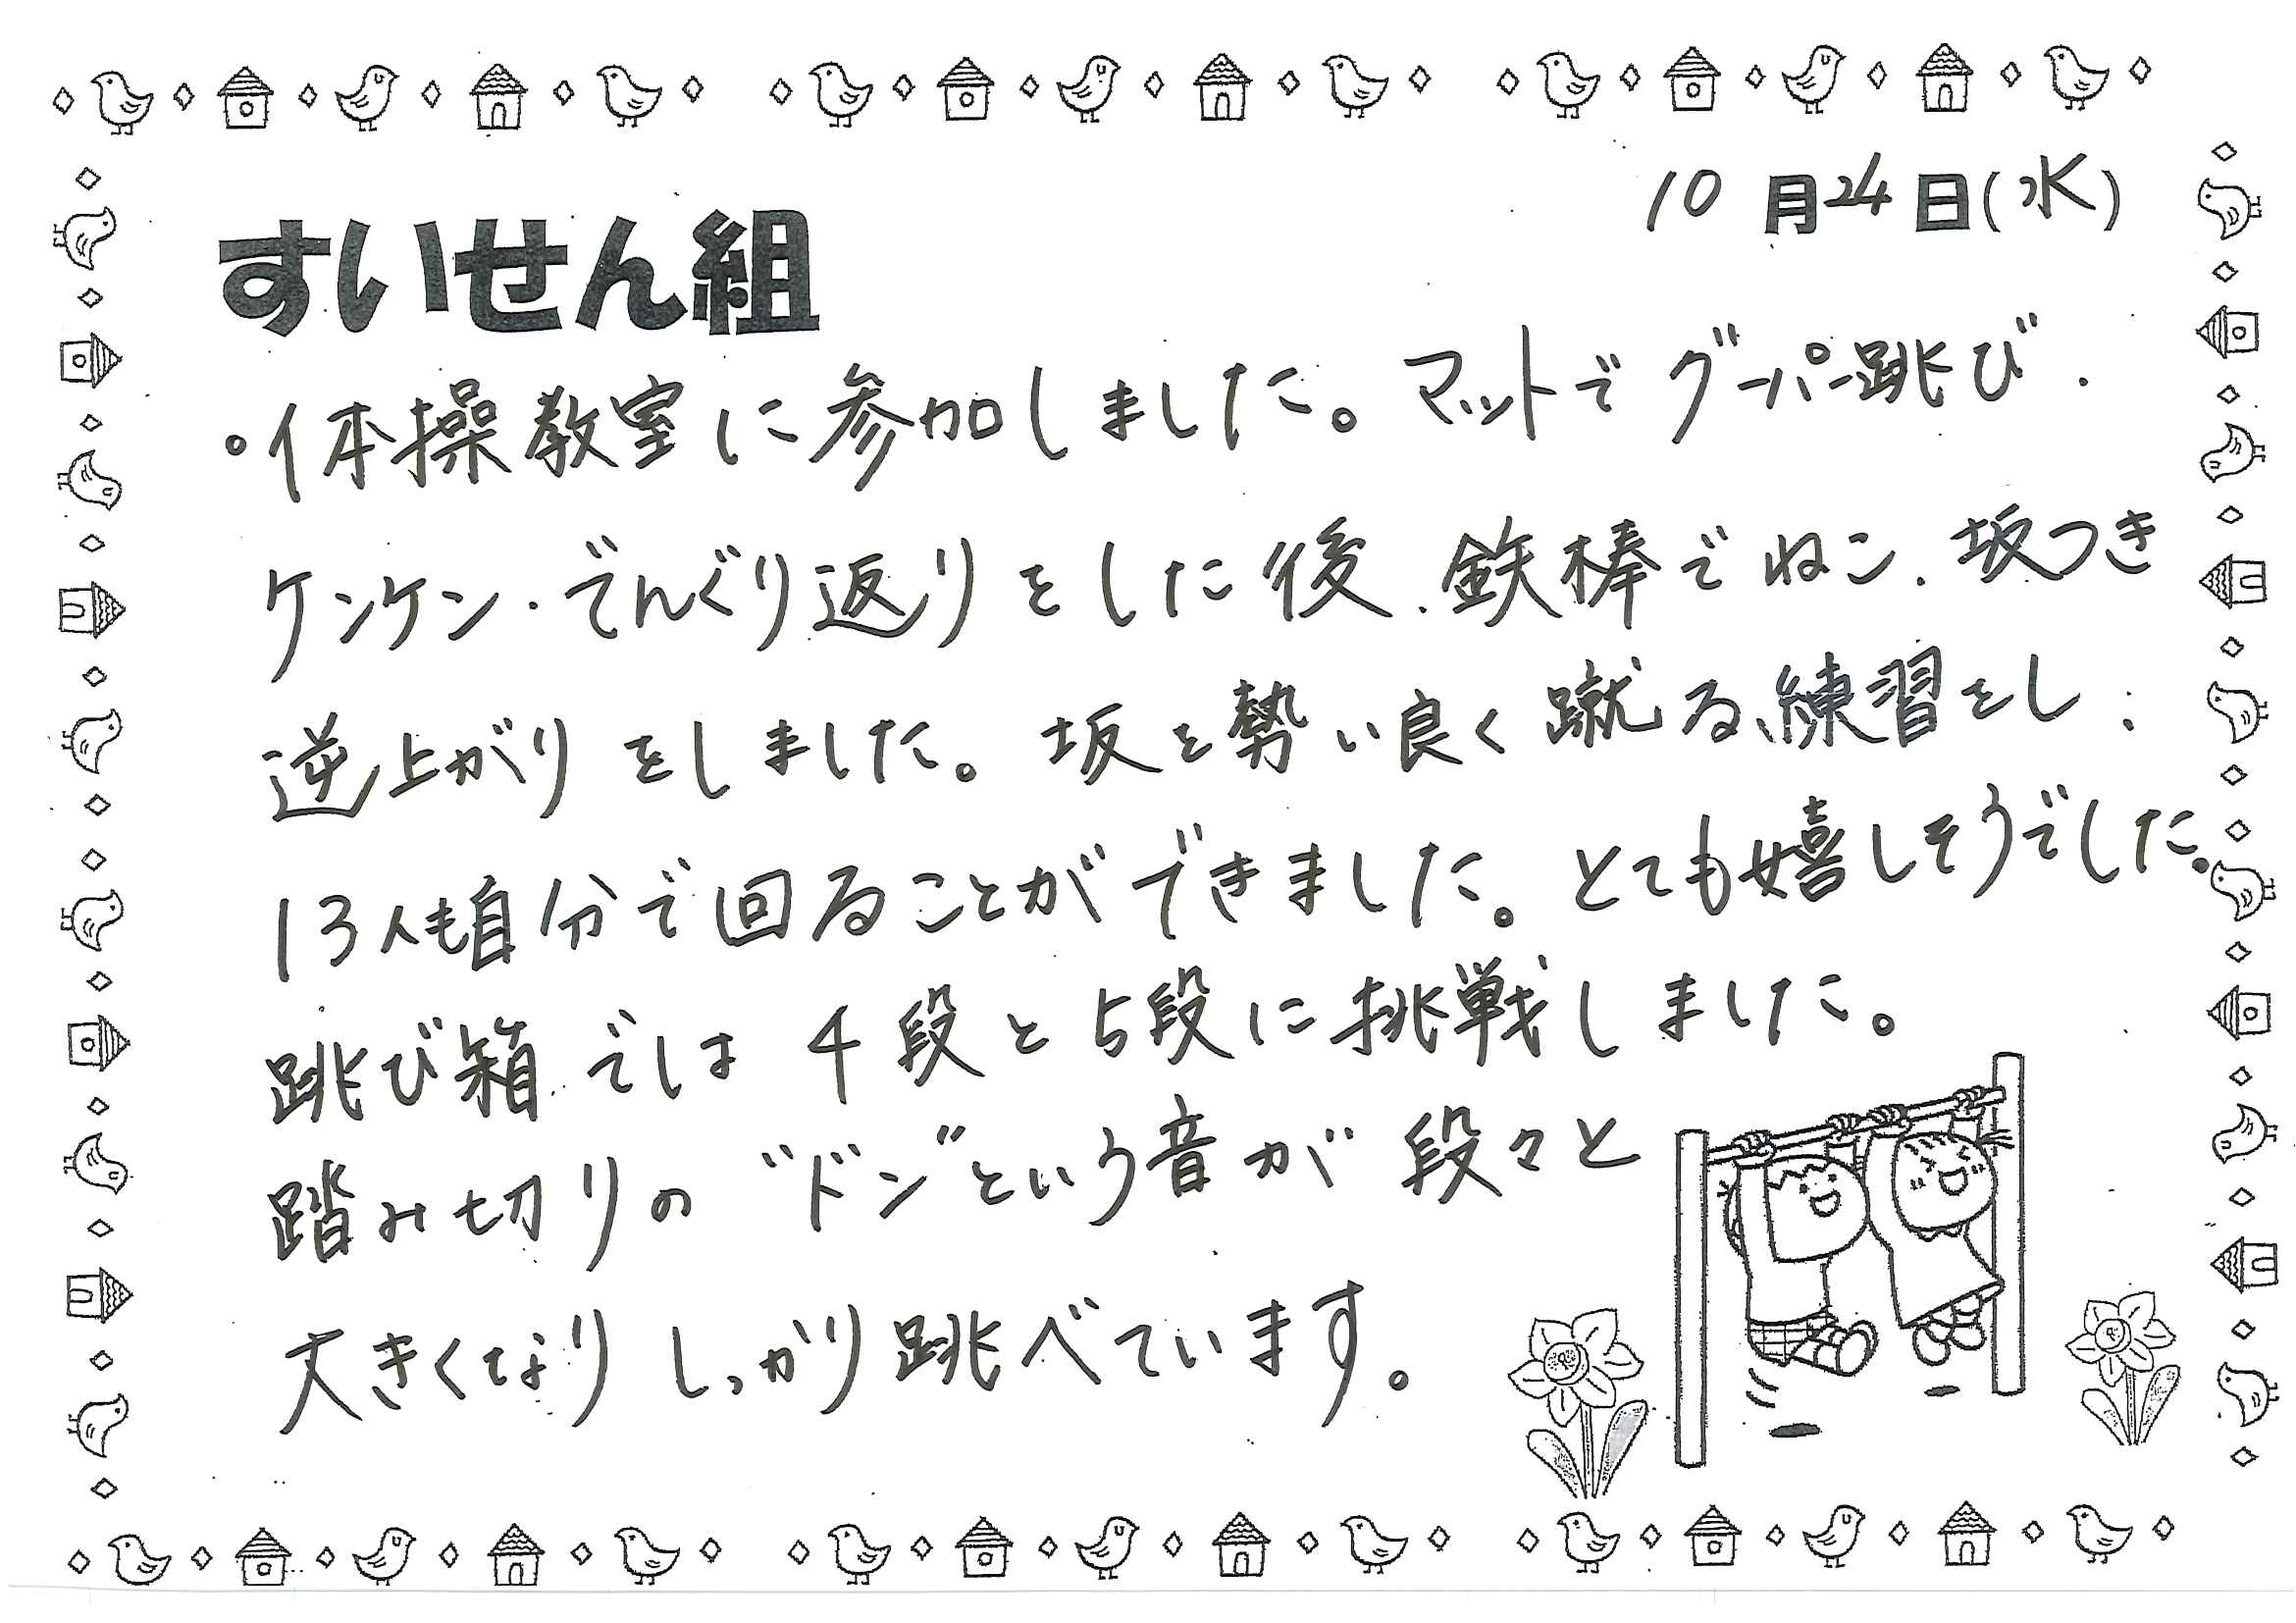 10月24日(水)
すいせん組
。体操教室に参加しました。マットでグーパー跳び・
ケンケン・でんぐり返りをした後、鉄棒でねこ、坂つき
逆上がりをしました。坂を勢い良く蹴る練習をし
13人も自分で回ることができました。とても嬉しそうでした。
跳び箱では4段と5段に挑戦しました。
踏み切りの"ドン"という音が段々と
大きくなりしっかり跳べています。